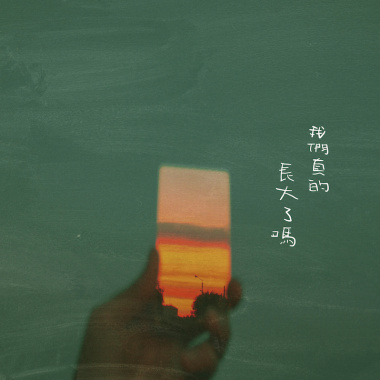 我們真的
長大了嗎